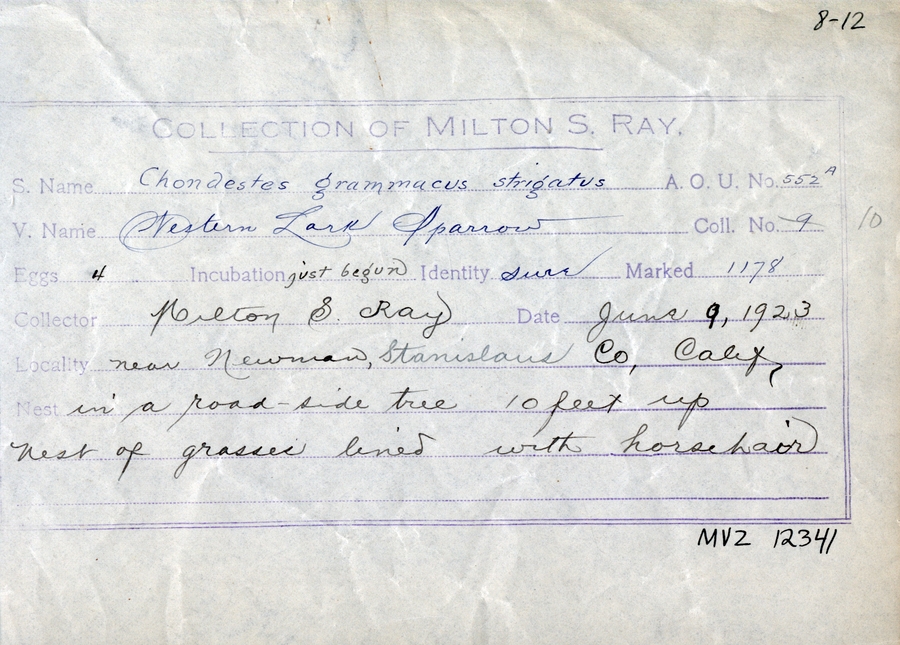 8-12
COLLECTION OF MILTON S. RAY.
S. Name Chondestes grammacus strigatus A. O. U. No. 552A
V. Name Western Lark Sparrow Coll. No. 9 10
Eggs 4 Incubation just begun Identity sure Marked 1178
Collector Milton S. Ray Date June 9, 1923
Locality near Newman, Stanislaus Co, Calif,
Nest in a road-side tree 10 feet up
nest of grasses lined with horsehair
MVZ 12341